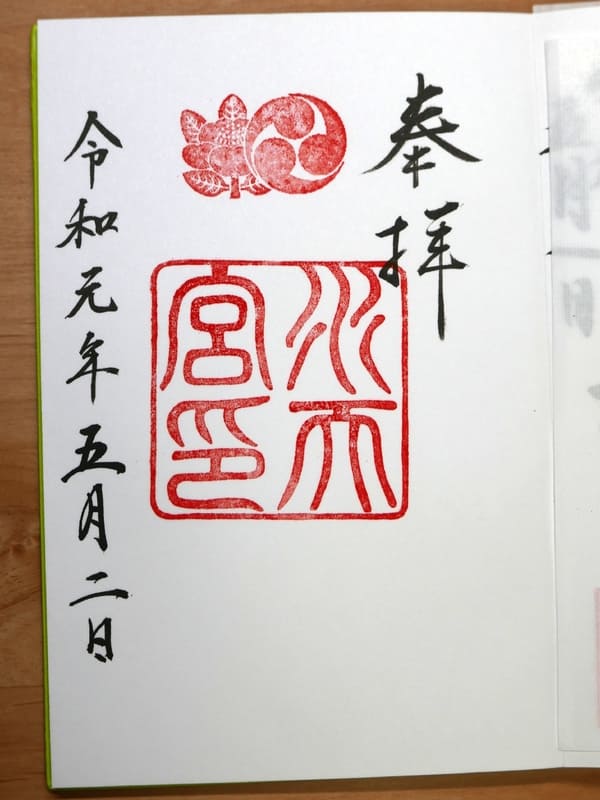 奉拝
水天宮印
令和元年五月二日